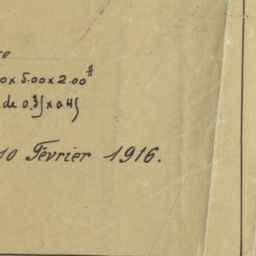 0 x 5.00 x 2.00
de 0.35 x 0.45
10 Février 1916.